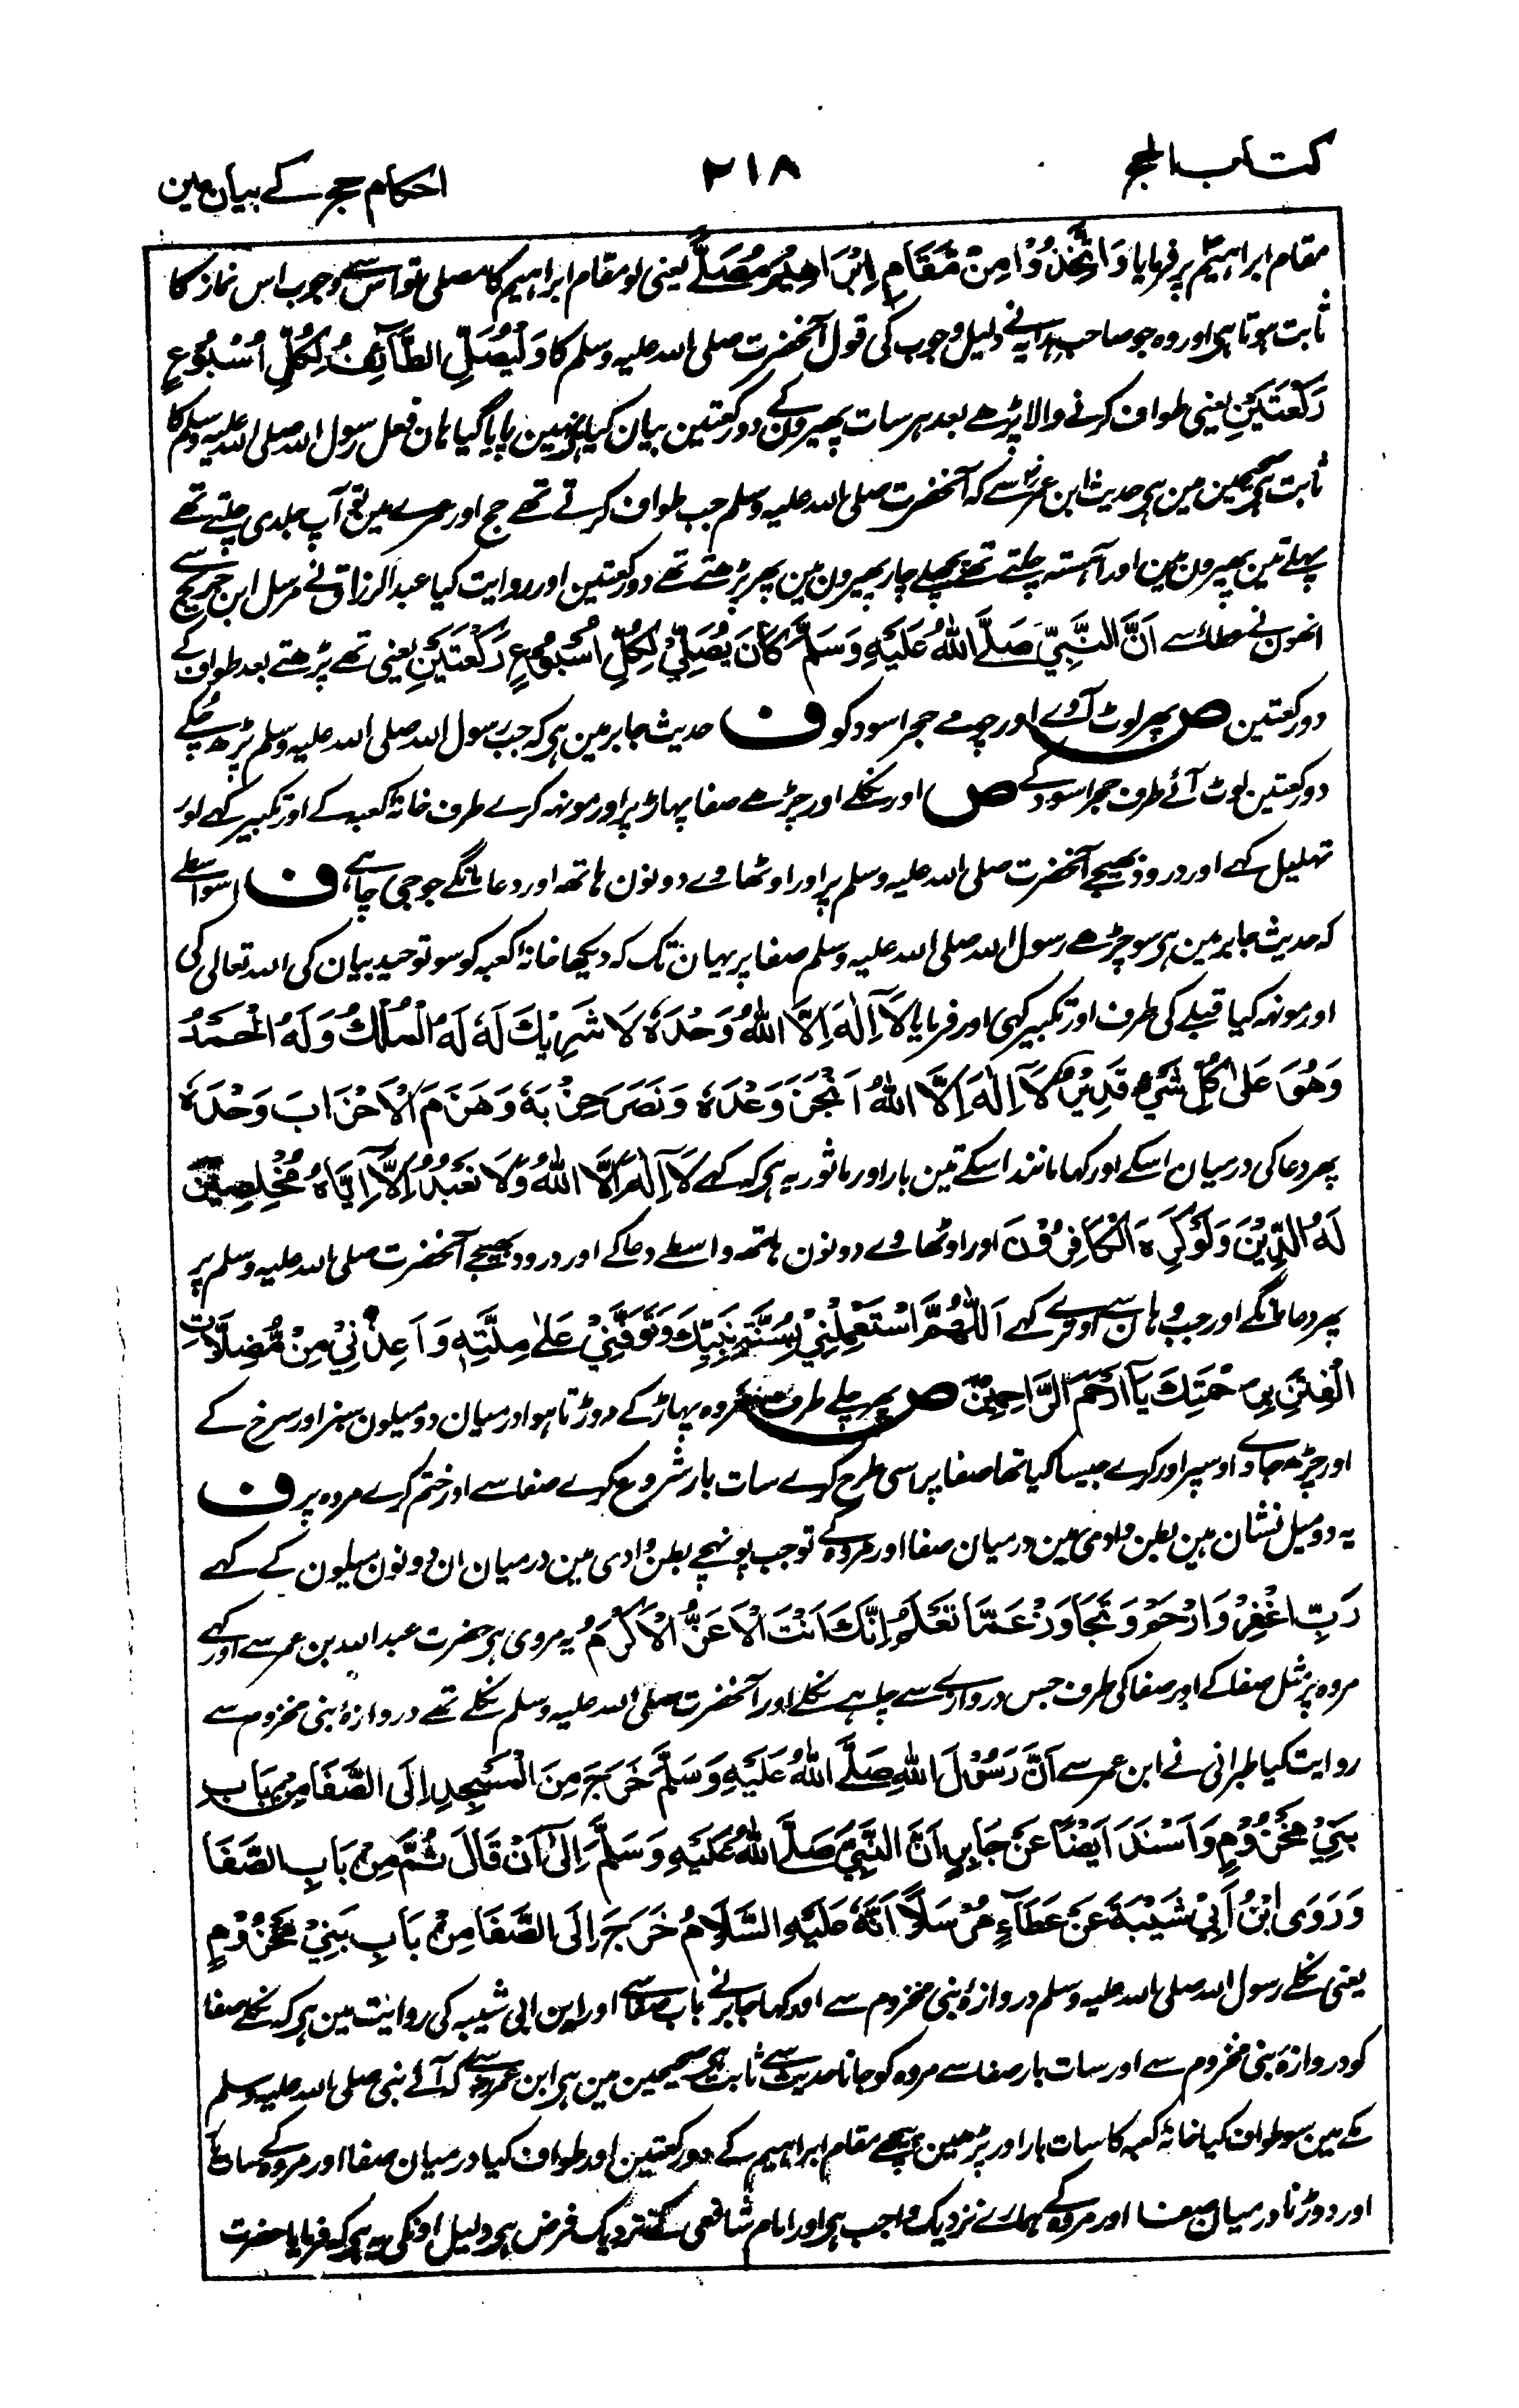 کتاب الحج
۲۱۸
احکام حج کے بیان مین
مقام ابراہیم پر فرمایا وَاتَّخِذُوْا مِنْ مَّقَامِ اِبْرَاهِيْمَ مُصَلًّے یعنی لو مقام ابراہیم کا مصلی تو اس سے وجوب اس نماز کا
ثابت ہوتا ہی اور وہ جو صاحب ہدایہ نے دلیل وجوب کی قول آنحضرت صلی اللہ علیہ وسلم کا وَلْيُصَلِّ الطَّآئِفُ لِكُلِّ اُسْبُوْعٍ
رَكْعَتَيْنِ یعنی طواف کرنے والا پڑھے بعد ہر سات پھیرون کے دو رکعتین بیان کیا ہی نہین پایا گیا ہان فعل رسول اللہ صلی اللہ علیہ وسلم کا
ثابت ہی صحیحین مین ہی حدیث ابن عمرؓ سے کہ آنحضرت صلی اللہ علیہ وسلم جب طواف کرتے تھے حج اور عمرے مین تو آپ جلدی چلتے تھے
پہلے تین پھیرون مین اور آہستہ چلتے تھے پچھلے چار پھیرون مین پھر پڑھتے تھے دو رکعتین اور روایت کیا عبد الرزاق نے مرسل ابن جریج سے
انھون نے عطا سے اَنَّ النَّبِيَّ صَلَّے اللهُ عَلَيْهِ وَسَلَّمَ كَانَ يُصَلِّيْ لِكُلِّ اُسْبُوْعٍ رَكْعَتَيْنِ یعنی تھے پڑھتے بعد طواف کے
دو رکعتین ص پھر لوٹ آوے اور چومے حجر اسود کو ف حدیث جابر مین ہی کہ جب رسول اللہ صلی اللہ علیہ وسلم پڑھ چکے
دو رکعتین لوٹ آئے طرف حجر اسود کے ص اور نکلے اور چڑھے صفا پہاڑ پر اور مونہہ کرے طرف خانۂ کعبہ کے اور تکبیر کہے اور
تہلیل کہے اور درود بھیجے آنحضرت صلی اللہ علیہ وسلم پر اور اوٹھاوے دونون ہاتھ اور دعا مانگے جو جی چاہے ف اسواسطے
کہ حدیث جابر مین ہی سو چڑھے رسول اللہ صلی اللہ علیہ وسلم صفا پر یہان تک کہ دیکھا خانۂ کعبہ کو سو توحید بیان کی اللہ تعالی کی
اور مونہہ کیا قبلے کی طرف اور تکبیر کہی اور فرمایا لَآ اِلٰهَ اِلَّا اللهُ وَحْدَهٗ لَا شَرِيْكَ لَهٗ لَهُ الْمُلْكُ وَلَهُ الْحَمْدُ
وَهُوَ عَلٰى كُلِّ شَيْءٍ قَدِيْرٌ لَآ اِلٰهَ اِلَّا اللهُ اَنْجَزَ وَعْدَهٗ وَنَصَرَ حِزْبَهٗ وَهَزَمَ الْاَحْزَابَ وَحْدَهٗ
پھر دعا کی درمیان اسکے اور کہا مانند اسکے تین بار اور ماثور یہ ہی کہ کہے لَآ اِلٰهَ اِلَّا اللهُ وَلَا نَعْبُدُ اِلَّآ اِيَّاهُ مُخْلِصِيْنَ
لَهُ الدِّيْنَ وَلَوْ كَرِهَ الْكَافِرُوْنَ اور اوٹھاوے دونون ہاتھ واسطے دعا کے اور درود بھیجے آنحضرت صلی اللہ علیہ وسلم پر
پھر دعا مانگے اور جب وہان سے اوترے کہے اَللّٰهُمَّ اسْتَعْمِلْنِيْ بِسُنَّةِ نَبِيِّكَ وَتَوَفَّنِيْ عَلٰى مِلَّتِهٖ وَاَعِذْنِيْ مِنْ مُّضِلَّاتِ
الْفِتَنِ بِرَحْمَتِكَ يَآ اَرْحَمَ الرَّاحِمِيْنَ ص پھر چلے طرف مروہ پہاڑ کے دوڑتا ہوا درمیان دو میلون سبز اور سرخ کے
اور چڑھ جاوے اوسپر اور کرے جیسا کیا تھا صفا پر اسی طرح کرے سات بار شروع کرے صفا سے اور ختم کرے مروہ پر ف
یہ دو میل نشان ہین بطن وادی مین درمیان صفا اور مروہ کے تو جب پونہچے بطن وادی مین درمیان ان دونون میلون کے کہے
رَبِّ اغْفِرْ وَارْحَمْ وَتَجَاوَزْ عَمَّا تَعْلَمُ اِنَّكَ اَنْتَ الْاَعَزُّ الْاَكْرَمُ یہ مروی ہی حضرت عبد اللہ بن عمر سے اور کہے
مروہ پر مثل صفا کے اور صفا کی طرف جس دروازے سے چاہے نکلے اور آنحضرت صلی اللہ علیہ وسلم نکلے تھے دروازۂ بنی مخزوم سے
روایت کیا طبرانی نے ابن عمر سے اَنَّ رَسُوْلَ اللهِ صَلَّے اللهُ عَلَيْهِ وَسَلَّمَ خَرَجَ مِنَ الْمَسْجِدِ اِلَى الصَّفَا مِنْ بَابِ
بَنِيْ مَخْزُوْمٍ وَاَسْنَدَ اَيْضًا عَنْ جَابِرٍ اَنَّ النَّبِيَّ صَلَّے اللهُ عَلَيْهِ وَسَلَّمَ اِلٰى اَنْ قَالَ ثُمَّ مِنْ بَابِ الصَّفَا
وَرَوَى ابْنُ اَبِيْ شَيْبَةَ عَنْ عَطَآءٍ مُرْسَلًا اَنَّهٗ عَلَيْهِ السَّلَامُ خَرَجَ اِلَى الصَّفَا مِنْ بَابِ بَنِيْ مَخْزُوْمٍ
یعنی نکلے رسول اللہ صلی اللہ علیہ وسلم دروازۂ بنی مخزوم سے اور کہا جابر نے باب صفا سے اور ابن ابی شیبہ کی روایت مین ہی کہ نکلے صفا
کو دروازۂ بنی مخزوم سے اور سات بار صفا سے مروہ کو جانا حدیث سے ثابت ہی صحیحین مین ہی ابن عمر سے کہ آئے نبی صلی اللہ علیہ وسلم
مکے مین سو طواف کیا خانۂ کعبہ کا سات بار اور پڑھین پیچھے مقام ابراہیم کے دو رکعتین اور طواف کیا درمیان صفا اور مروہ کے سات بار
اور دوڑنا درمیان صفا اور مروہ کے ہمارے نزدیک واجب ہی اور امام شافعی کے نزدیک فرض ہی دلیل اونکی یہ ہی کہ فرمایا حضرت